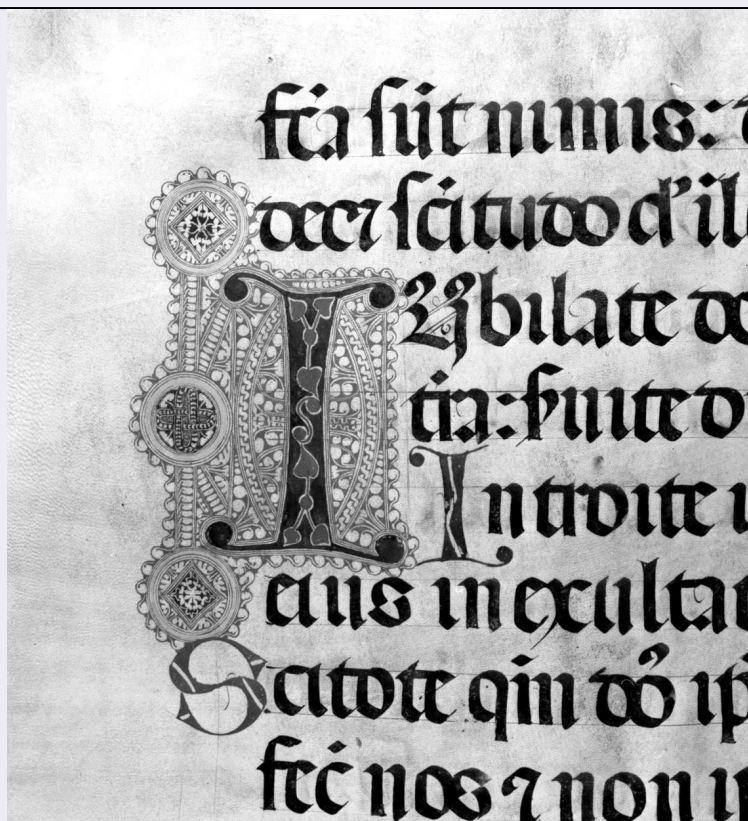 fc̄a sūt nimis:
decꝫ sc̄itudo d'
IUbilate
tr̄a: ẜuite
Introite
eius in exulta
Scitote qm̄ dō ip
fec̄ nos ⁊ non